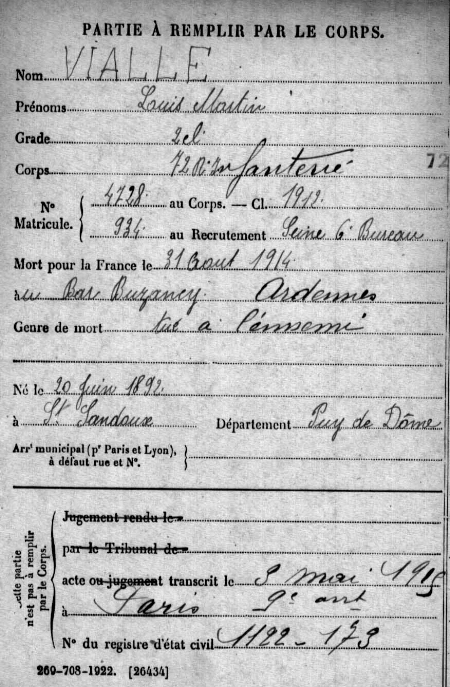 PARTIE À REMPLIR PAR LE CORPS.
Nom VIALLE
Prénoms Louis Martin
Grade 2el
Corps 72 R. Infanterie 72
N° Matricule. 4728 au Corps. — Cl. 1912.
934 au Recrutement Seine 6e Bureau
Mort pour la France le 31 Aout 1914
à au Bar Buzancy Ardennes
Genre de mort tué a l'énnemi
Né le 20 Juin 1892
à St Sandoux Département Puy de Dôme
Arrt municipal (pr Paris et Lyon), à défaut rue et N°.
Cette partie n'est pas à remplir par le Corps.
Jugement rendu le
par le Tribunal de
acte ou jugement transcrit le 3 mai 1915
à Paris 9e arrt
N° du registre d'état civil 1122-173
269-708-1922. [26434]